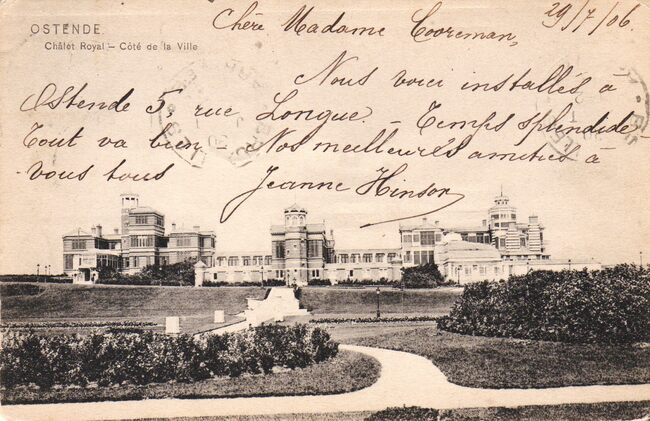 OSTENDE.
Châlet Royal – Côté de la Ville
29/7/06
Chère Madame Cooreman,
Nous voici installés à
Ostende 5, rue Longue – Temps splendide –
Tout va bien – Nos meilleures amitiés à
vous tous
Jeanne Hinson